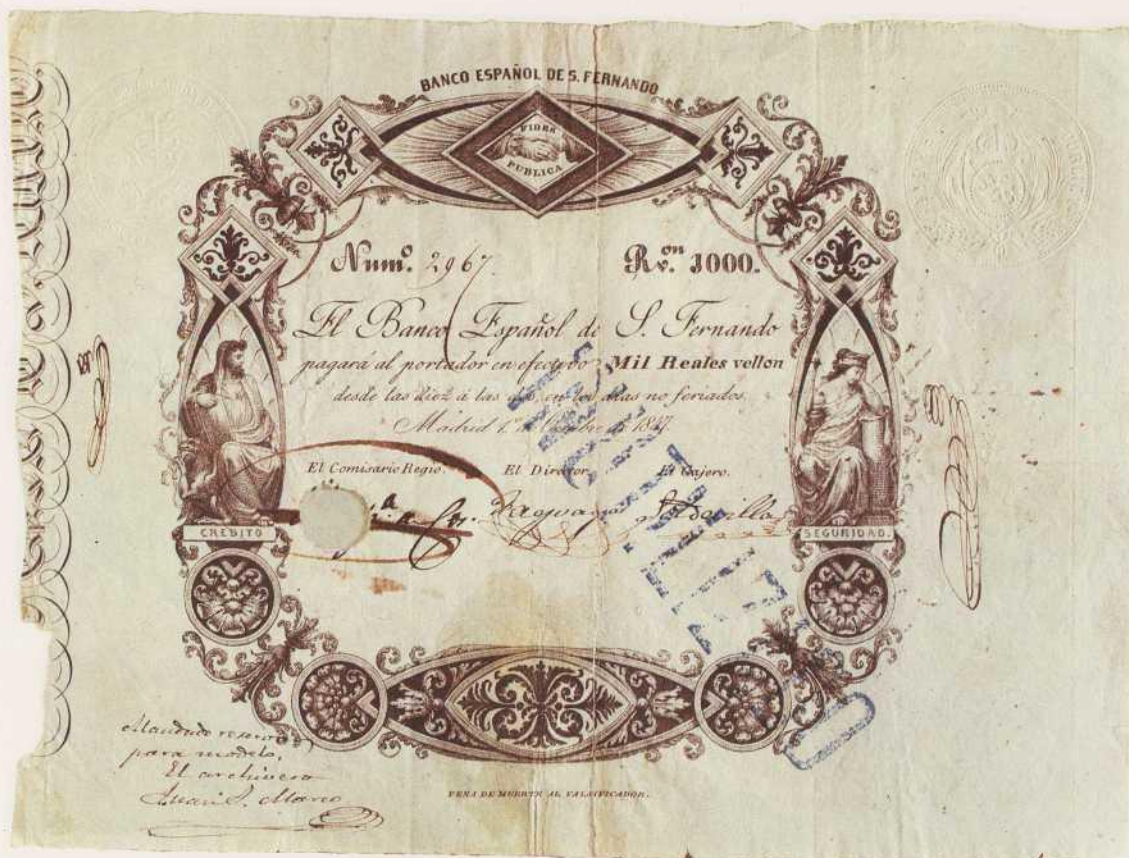 BANCO ESPAÑOL DE S. FERNANDO
FIDES
PUBLICA
Num.º 2967.
R.s v.on 1000.
El Banco Español de S. Fernando
pagará al portador en efectivo Mil Reales vellon
desde las diez a las dos, en los dias no feriados.
Madrid 1.º de Octubre de 1847.
El Comisario Regio.
El Director.
El Cajero.
CREDITO
SEGURIDAD.
reservado
para modelo.
El archivero
PENA DE MUERTE AL FALSIFICADOR.